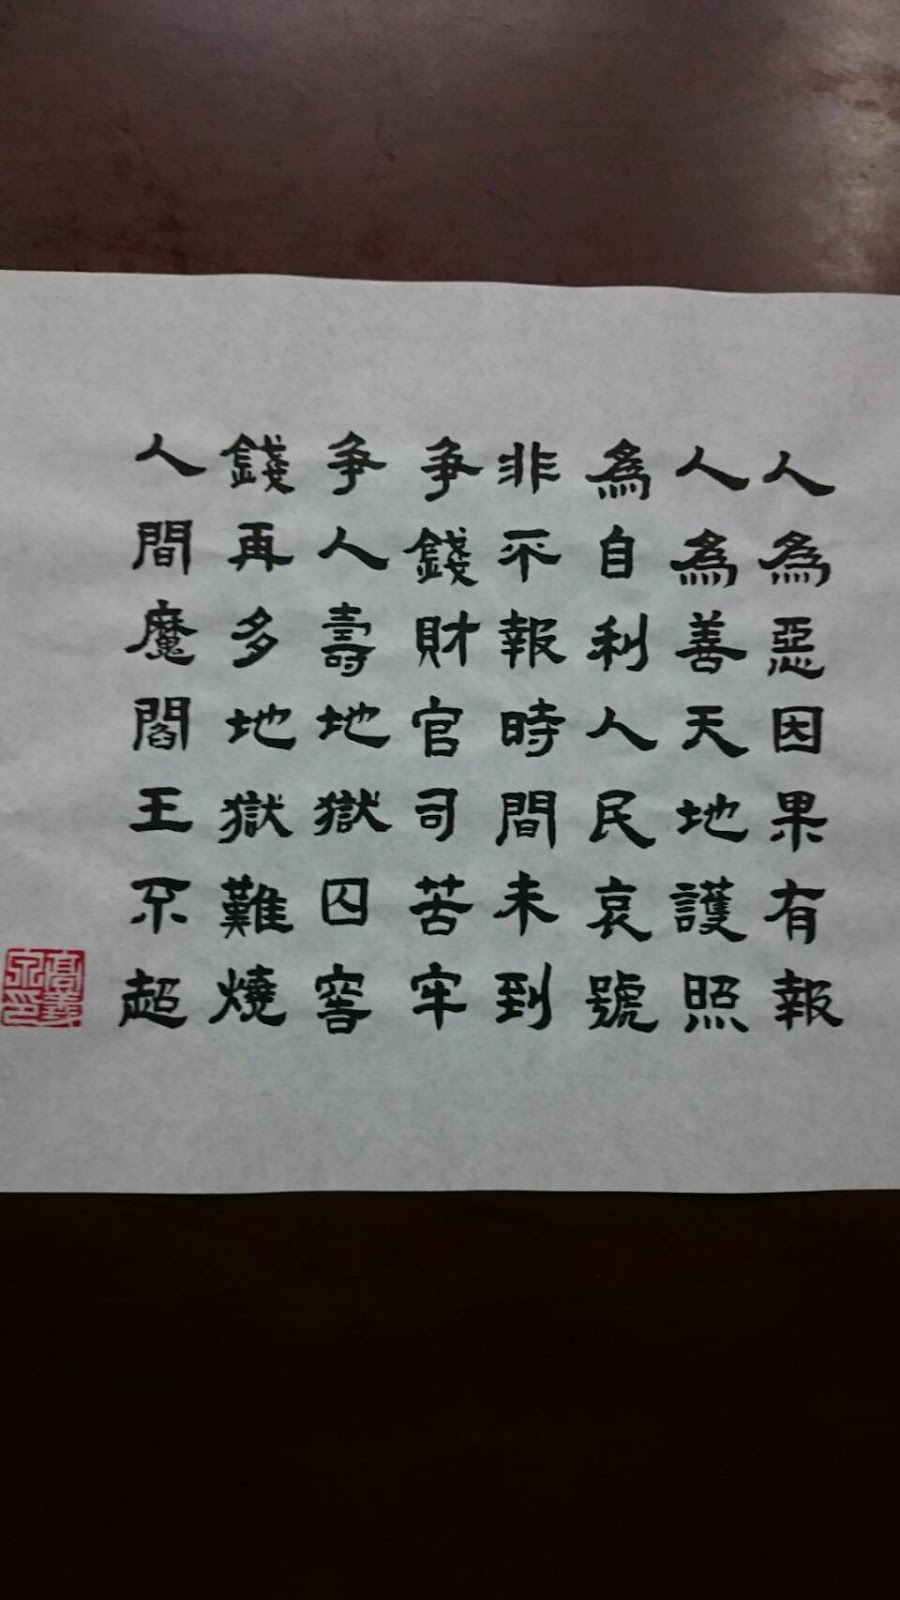 人為惡因果有報
人為善天地護照
為自利人民哀號
非不報時間未到
爭錢財官司苦牢
爭人壽地獄囚窖
錢再多地獄難燒
人間魔閻王不超